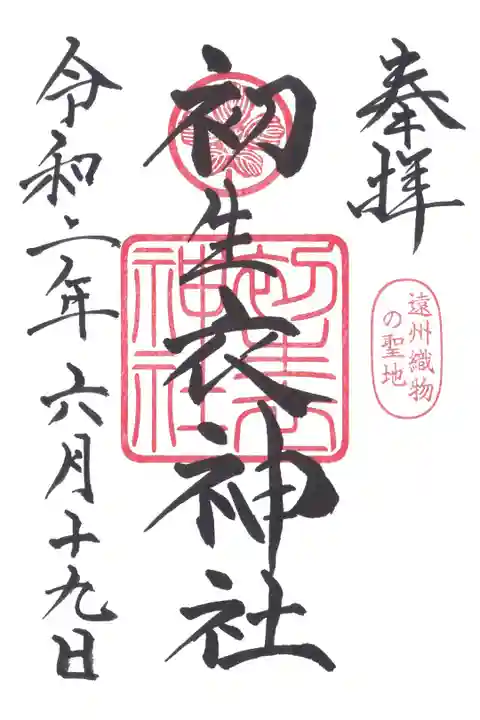 奉拝
遠州織物
の聖地
初生衣神社
初生衣
神社
令和二年六月十九日